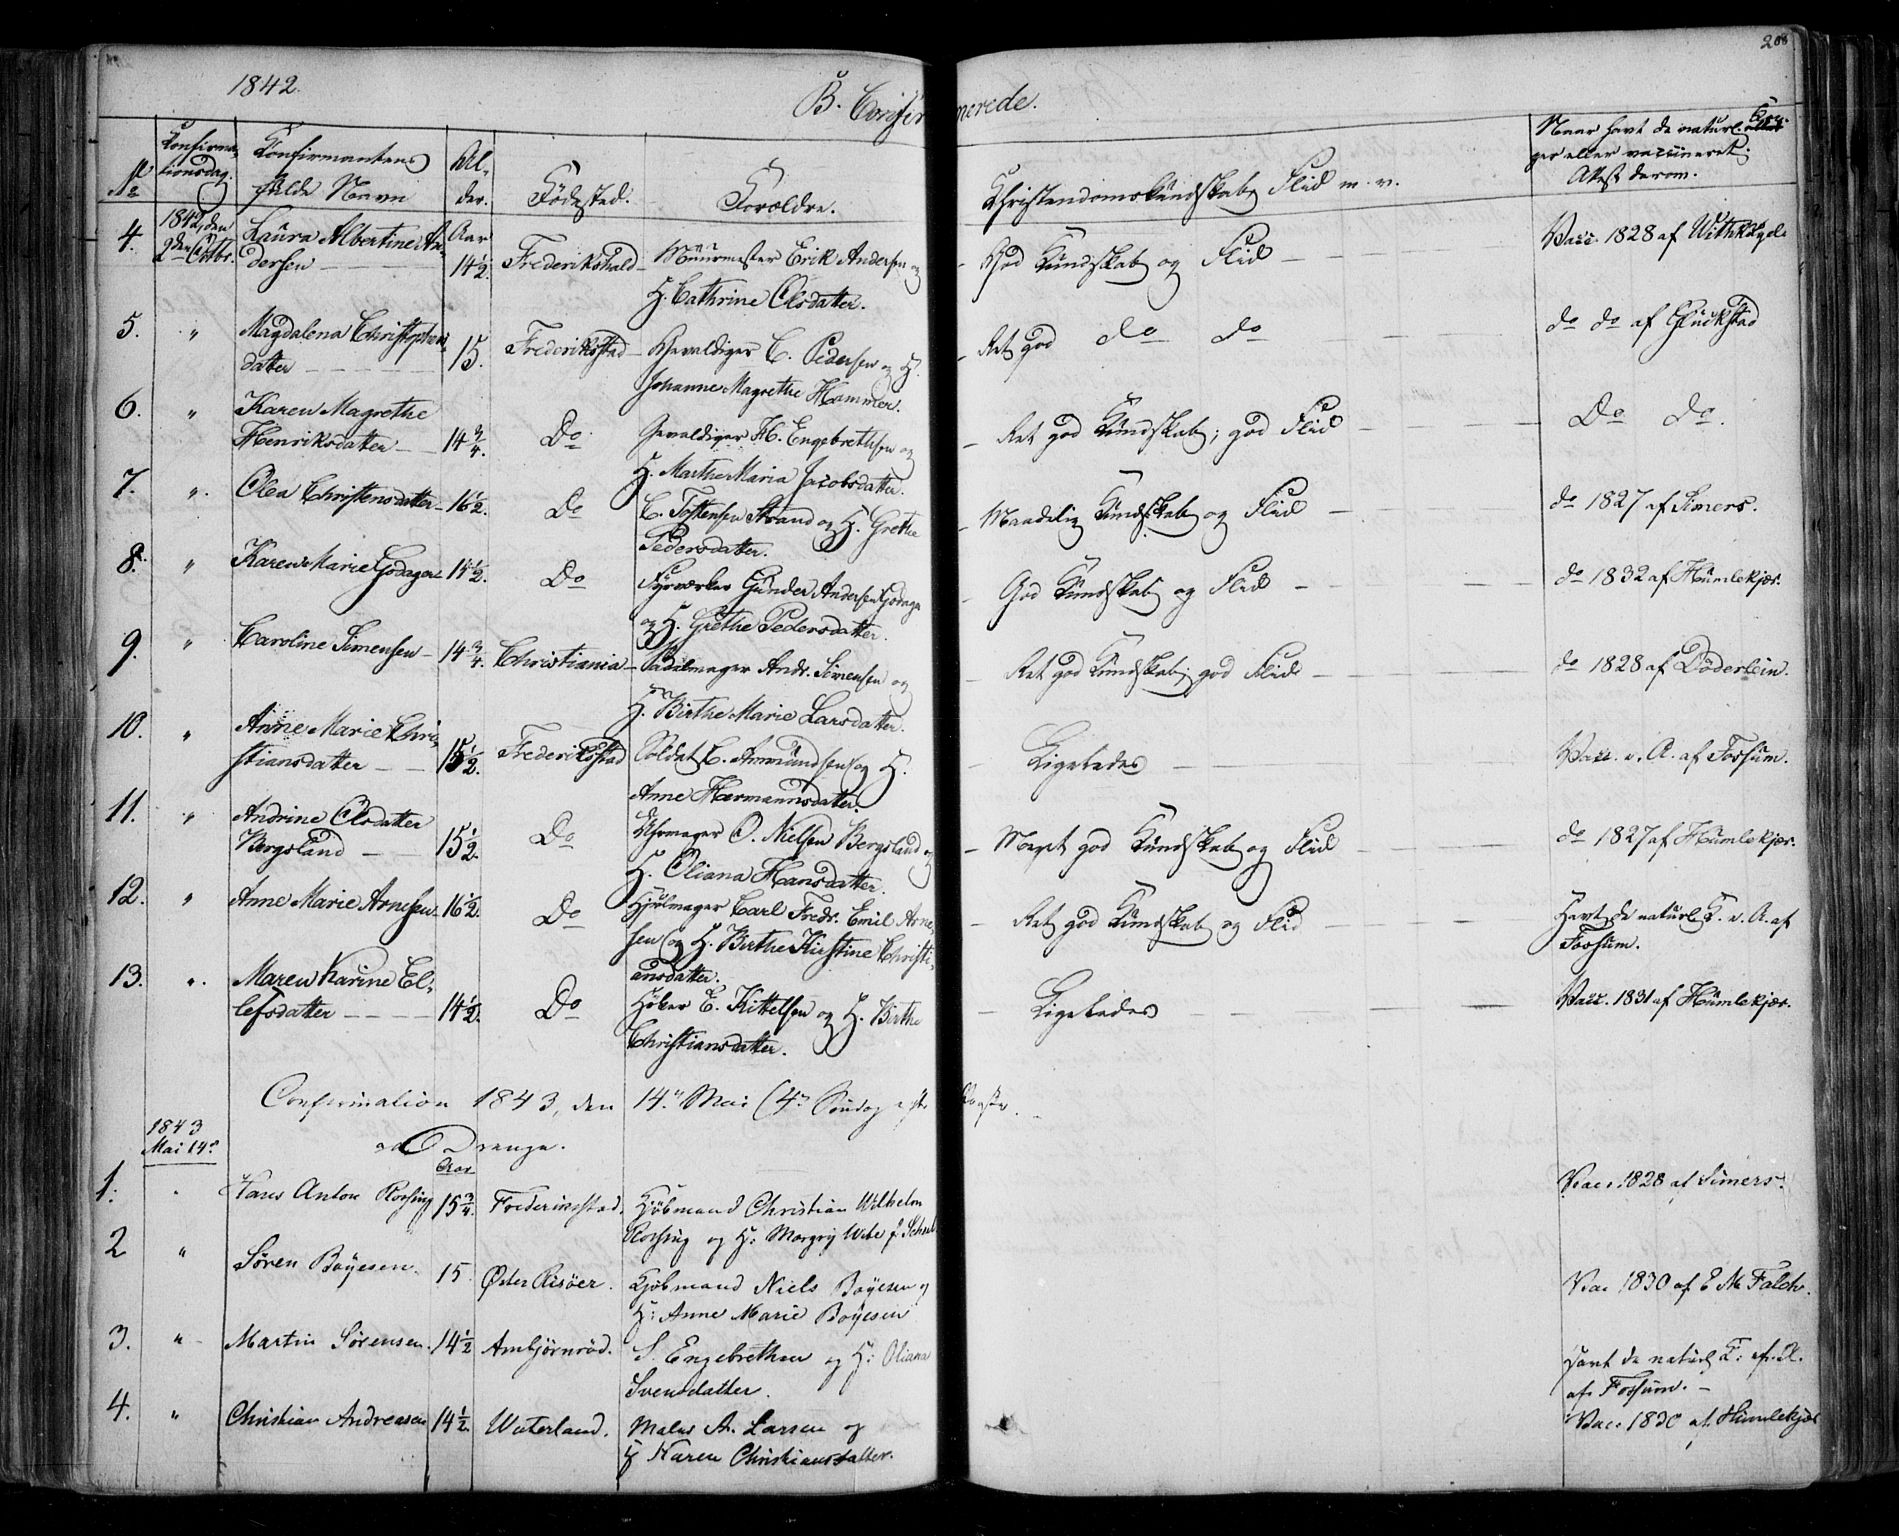 208
1842.
B. Confirmerede.
No
Konfirma-
tionsdag.
Konfirmantens
fulde Navn
Al-
der.
Fødested.
Forældre.
Christendomskundskab, Flid m. v.
Naar havt de naturl. Kop-
per eller vaccineret.
Attest derom.
4.
1842, den
2den Octbr.
Laura Albertine An-
dersen
Aar
14 1/2.
Frederikshald
Muurmester Erik Andersen og
H. Cathrine Olsdatter.
God Kundskab og Flid
Vacc. 1828 af Withkugel
5.
"
Magdalena Christophers-
datter
15.
Frederiksstad
Gevaldiger C. Pedersen og H.
Johanne Magrethe Hammer.
Ret god do do
do do af Gluckstad
6.
"
Karen Magrethe
Henriksdatter
14 3/4.
Do
Gevaldiger H. Engebrethsen og
H. Marthe Maria Jacobsdatter.
Ret god Kundskab; god Flid
Do do.
7.
"
Olea Christensdatter
16 1/2.
Do
C. Tostensen Strand og H. Grethe
Pedersdatter.
Maadelig Kundskab og Flid
do 1827 af Simers.
8.
"
Karen Marie Godager
15 1/2.
Do
Fyrværker Gunder Andersen Godager
og H. Grethe Pedersdatter.
God Kundskab og Flid
do 1832 af Humlekjær.
9.
"
Caroline Simensen
14 3/4.
Christiania
Sadelmager Andr. Simensen og
H. Birthe Marie Larsdatter.
Ret god Kundskab; god Flid
do 1828 af Döderlein.
10.
"
Anne Marie Chri-
stiansdatter
15 1/2.
Frederiksstad
Soldat C. Amundsen og H.
Anne Hermannsdatter.
Ligeledes
Vacc. e. A. af Fossum.
11.
"
Andrine Olsdatter
Bergsland
15 1/2.
Do
Uhrmager O. Nielsen Bergsland og
H. Oliana Hansdatter.
Meget god Kundskab og Flid
do 1827 af Humlekjær.
12.
"
Anne Marie Arnesen
16 1/2.
Do
Hjulmager Carl Fredr. Emil Arne-
sen og H. Birthe Kirstine Christi-
ansdatter.
Ret god Kundskab og Flid
Havt de naturl. K. e. A. af
Fossum.
13.
"
Maren Karine El-
lefsdatter
14 1/2.
Do
Høker E. Kittelsen og H. Birthe
Christiansdatter.
Ligeledes
Vacc. 1831 af Humlekjær.
Confirmation 1843, den 14de Mai (4de Søndag efter Paaske.
1843
Mai 14de
Drenge.
1.
"
Hans Anton Rossing
Aar
15 3/4.
Frederiksstad.
Kjøbmand Christian Wilhelm
Rossing og H: Margrij Wibe f.
Vac. 1828 af Simers.
2
"
Søren Boyesen.
15.
Øster Risöer.
Kjøbmand Niels Boyesen og
H: Anne Marie Boyesen
Vac 1830 af E M Falch.
3.
"
Martin Sørensen.
14 1/2
Ambjørnrød.
S. Engebrethsen og H: Oliana
Svensdatter.
Havt de naturl. K: ef. A.
af Fossum.
4.
"
Christian Andreasen
14 1/2.
Vaterland.
Maler A. Larsen og
H Karen Christiansdatter.
Vac. 1830 af Humlekjær